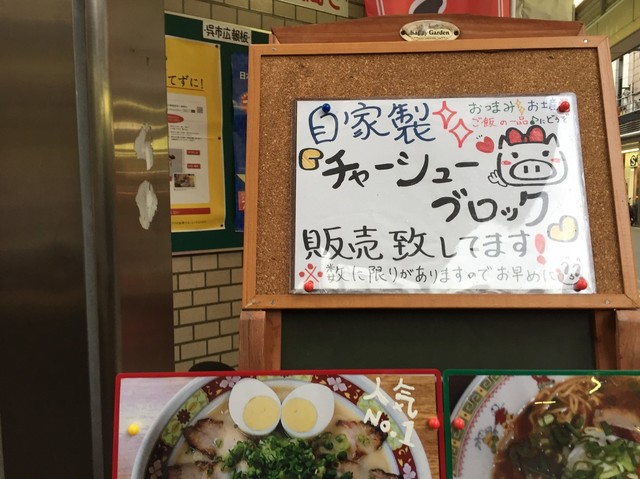 呉市広報板
Happy Garden
自家製
おつまみ
お土産
ご飯の一品にどうぞ
『チャーシュー
ブロック』
販売致してます!
※数に限りがありますのでお早めに
てずに!
人気
No.1